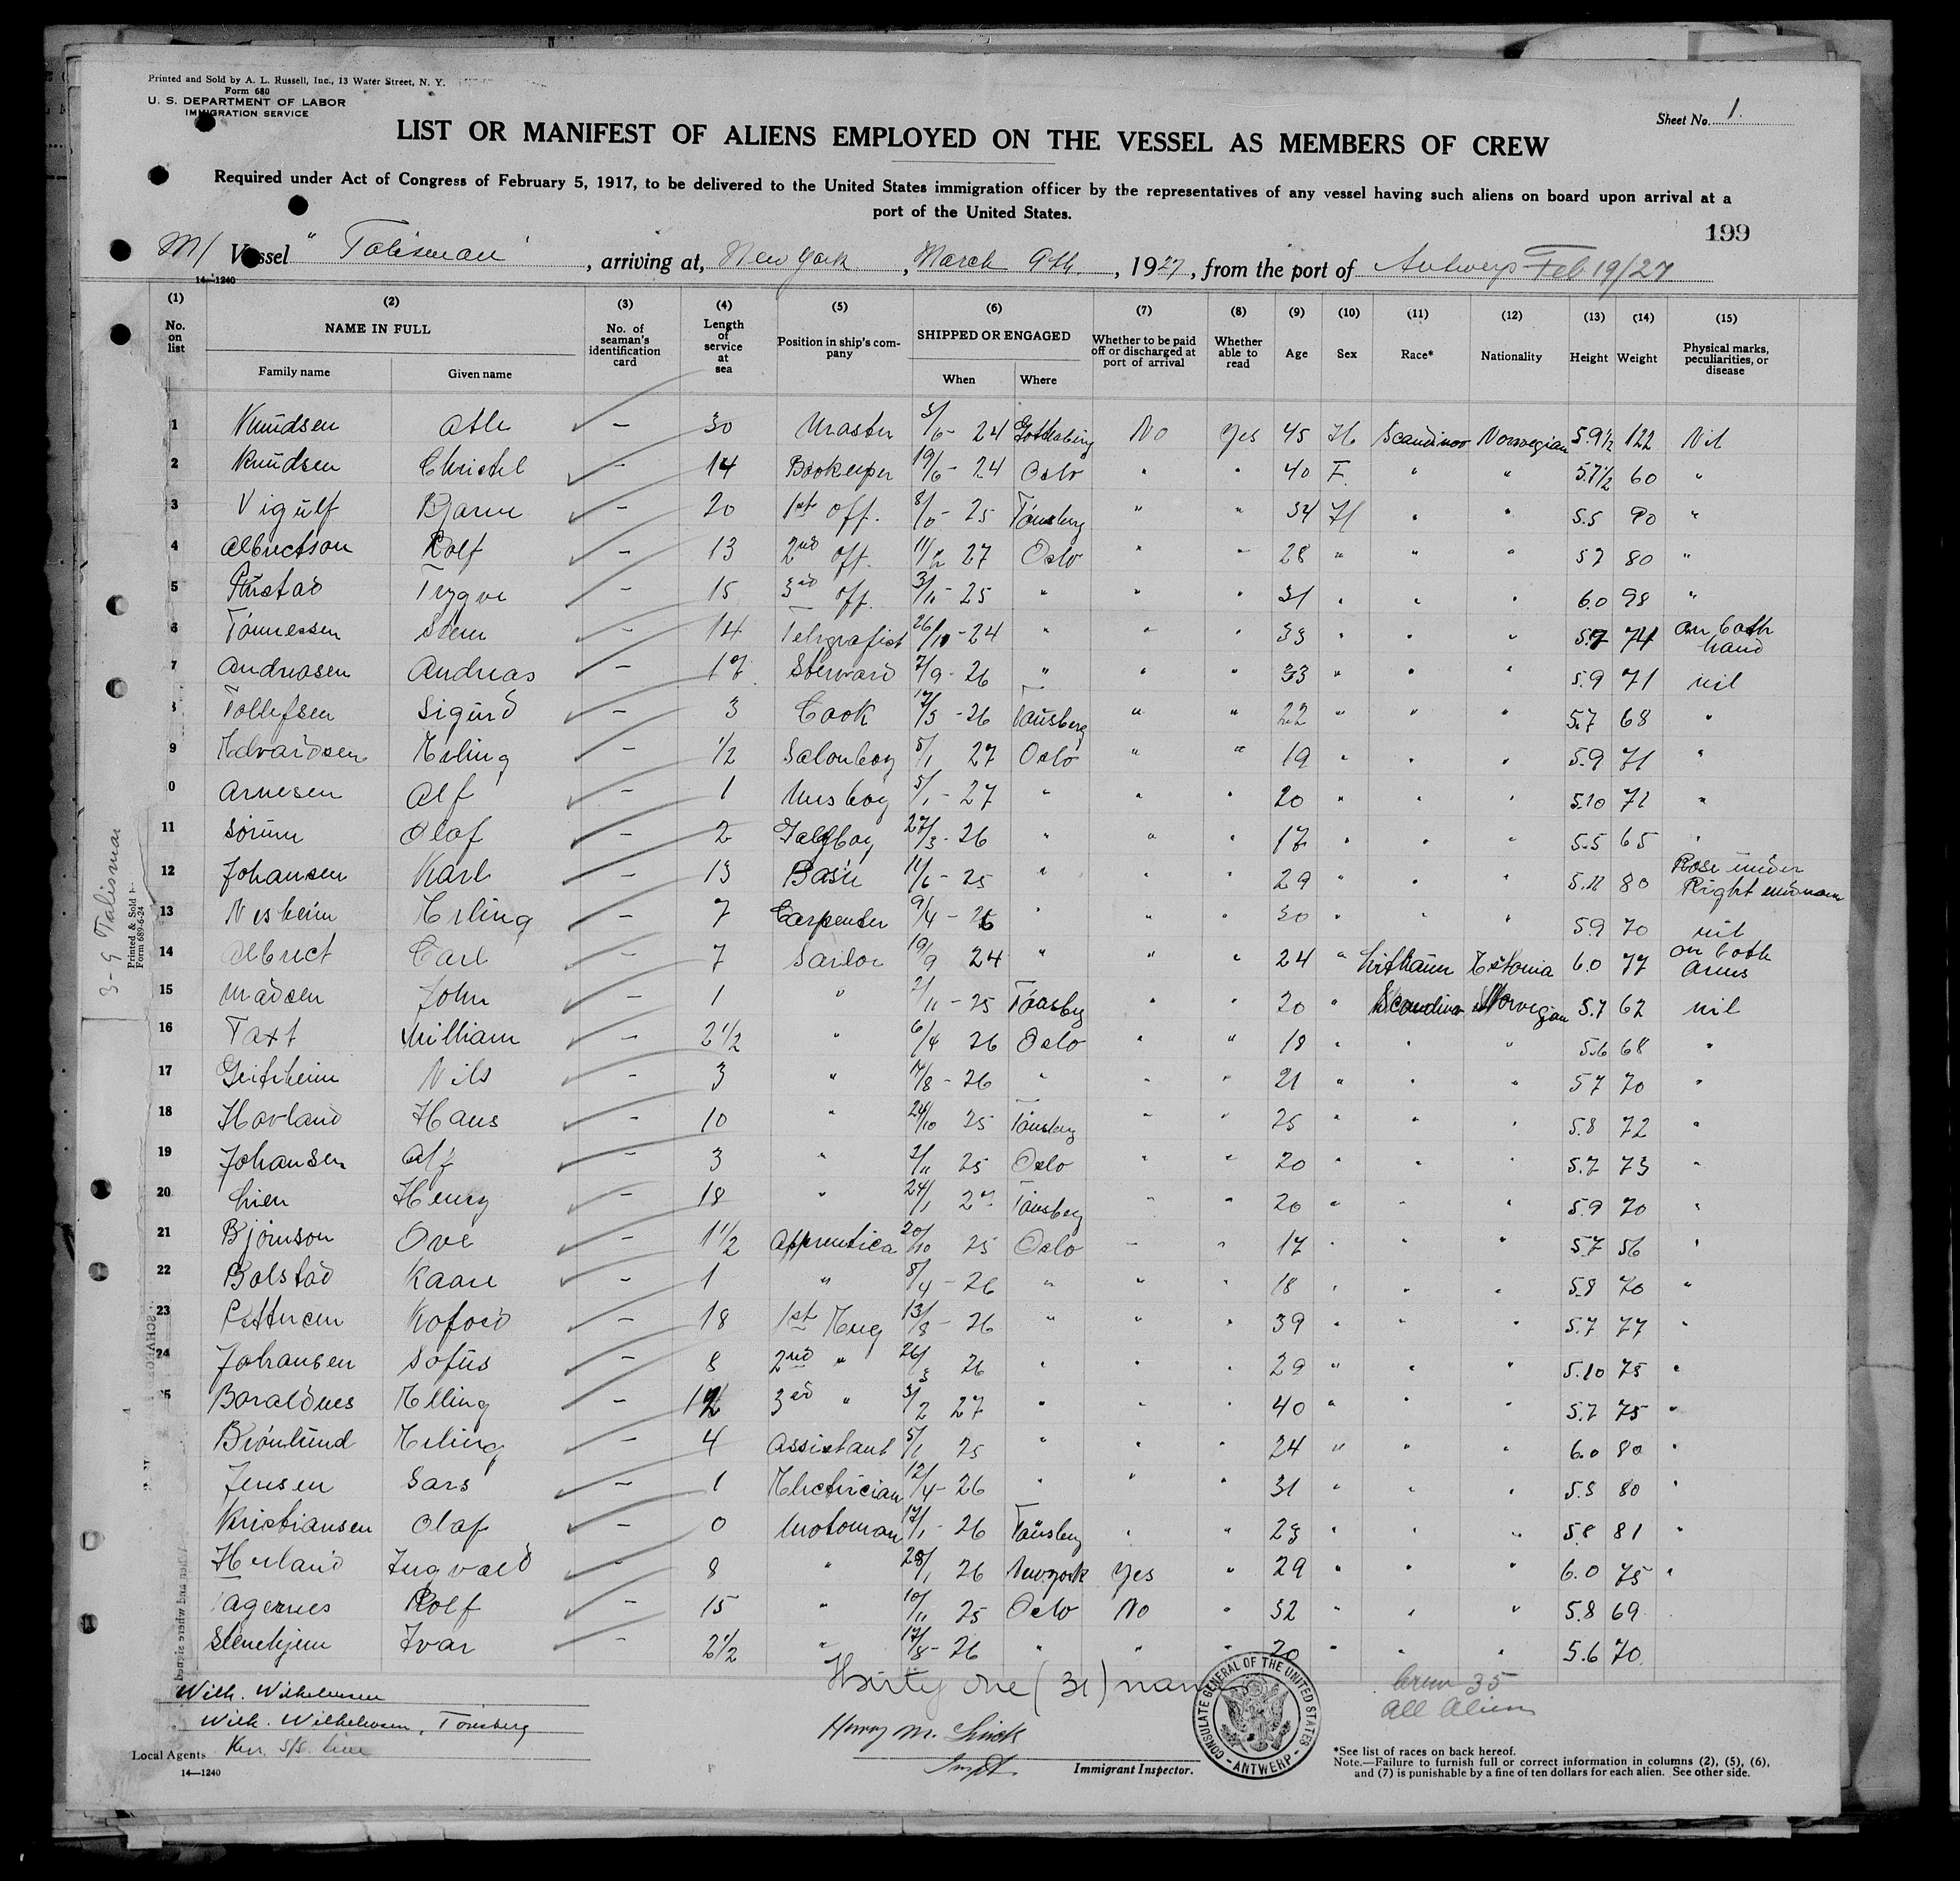 Printed and Sold by A. L. Russell, Inc., 13 Water Street, N. Y.
Form 680
U. S. DEPARTMENT OF LABOR
IMMIGRATION SERVICE
Sheet No. 1.
LIST OR MANIFEST OF ALIENS EMPLOYED ON THE VESSEL AS MEMBERS OF CREW
Required under Act of Congress of February 5, 1917, to be delivered to the United States immigration officer by the representatives of any vessel having such aliens on board upon arrival at a
port of the United States.
199
M/ Vessel "Talisman", arriving at, New York, March 9th, 1927, from the port of Antwerp Feb 19/27
14—1240
(1) (2) (3) (4) (5) (6) (7) (8) (9) (10) (11) (12) (13) (14) (15)
No. on list NAME IN FULL Family name Given name No. of seaman's identification card Length of service at sea Position in ship's company SHIPPED OR ENGAGED When Where Whether to be paid off or discharged at port of arrival Whether able to read Age Sex Race* Nationality Height Weight Physical marks, peculiarities, or disease
1 Knudsen Atle — 30 Master 3/6 - 24 Gothenburg No Yes 45 M Scandinav Norwegian 5.9½ 122 Nil
2 Knudsen Christel — 14 Bookeeper 19/6 - 24 Oslo " " 40 F. " " 5.7½ 60 "
3 Vigulf Bjarne — 20 1st off. 8/10 - 25 Tönsberg " " 34 M " " 5.5 90 "
4 Albrectson Rolf — 13 2nd off. 11/2 27 Oslo " " 28 " " " 5.7 80 "
5 Trygve — 15 3rd off. 3/11 - 25 " " " 31 " " " 6.0 98 "
6 Tönnessen — 14 Telegrafist 26/10 - 24 " " " 33 " " " 5.7 74 on both hand
7 Andreasen Andreas — Steward 7/9 - 26 " " " 33 " " " 5.9 71 nil
8 Tollefsen Sigurd — 3 Cook 26 Tønsberg " " 22 " " " 5.7 68 "
9 Edvardsen Erling — ½ Salonboy 5/1 27 Oslo " " 19 " " " 5.9 71 "
0 Arnesen Alf — 1 Messboy 5/1 - 27 " " " 20 " " " 5.10 71 "
11 Sørum Olaf — 2 27/3 - 26 " " " 17 " " " 5.5 65 "
12 Johansen Karl — 13 11/6 - 25 " " " 29 " " " 5.11 80 Rose under Right
13 Nesheim Erling — 7 Carpenter 9/4 - 26 " " " 30 " " " 5.9 70 nil
14 Albrect Carl — 7 Sailor 19/9 24 " " " 24 " Estonia 6.0 77 on both arms
15 Madsen John — 1 " 2/11 - 25 Tönsberg " " 20 " Scandinav Norvegian 5.7 62 nil
16 Taxt William — 2½ " 6/4 26 Oslo " " 18 " " " 5.6 68 "
17 Nils — 3 " 17/8 - 26 " " " 21 " " " 5.7 70 "
18 Hovland Hans — 10 " 24/10 25 Tönsberg " " 25 " " " 5.8 72 "
19 Johansen Alf — 3 " 2/11 25 Oslo " " 20 " " " 5.7 73 "
20 Lien Henry — 18 " 24/1 Tønsberg " " 20 " " " 5.9 70 "
21 Bjørnson Ove — 1½ Apprentice 20/10 25 Oslo " " 17 " " " 5.7 56 "
22 Bolstad Kaare — 1 " 8/4 - 26 " " " 18 " " " 5.8 70 "
23 Kofoed — 18 1st Eng 13/8 - 26 " " " 39 " " " 5.7 77 "
24 Johansen Sofus — 8 2nd " 26/3 26 " " " 29 " " " 5.10 75 "
25 Elling — 12 3rd " 3/2 27 " " " 40 " " " 5.7 75 "
Brönlund Erling — 4 Assistant 5/1 25 " " " 24 " " " 6.0 80 "
Jensen Lars — 1 Electrician 12/4 - 26 " " " 31 " " " 5.5 80 "
Kristiansen Olaf — 0 Motoman 17/1 - 26 Tønsberg " " 23 " " " 5.8 81 "
Herland Ingvald — 8 " 28/1 26 Newyork Yes " 29 " " " 6.0 75 "
Rolf — 15 " 10/11 25 Oslo No " 32 " " " 5.8 69
Stenehjem Ivar — 2½ " 17/8 - 26 " " " 20 " " " 5.6 70
3-9 Talisman
Printed & Sold
Form 689-6-24
Thirty one (31) names
Wilh. Wilhelmsen
Wilh. Wilhelmsen, Tönsberg
Local Agents Kerr S/S. Line
14—1240
Immigrant Inspector.
CONSULATE GENERAL OF THE UNITED STATES - ANTWERP -
Crew 35
All Aliens
*See list of races on back hereof.
Note.—Failure to furnish full or correct information in columns (2), (5), (6),
and (7) is punishable by a fine of ten dollars for each alien. See other side.